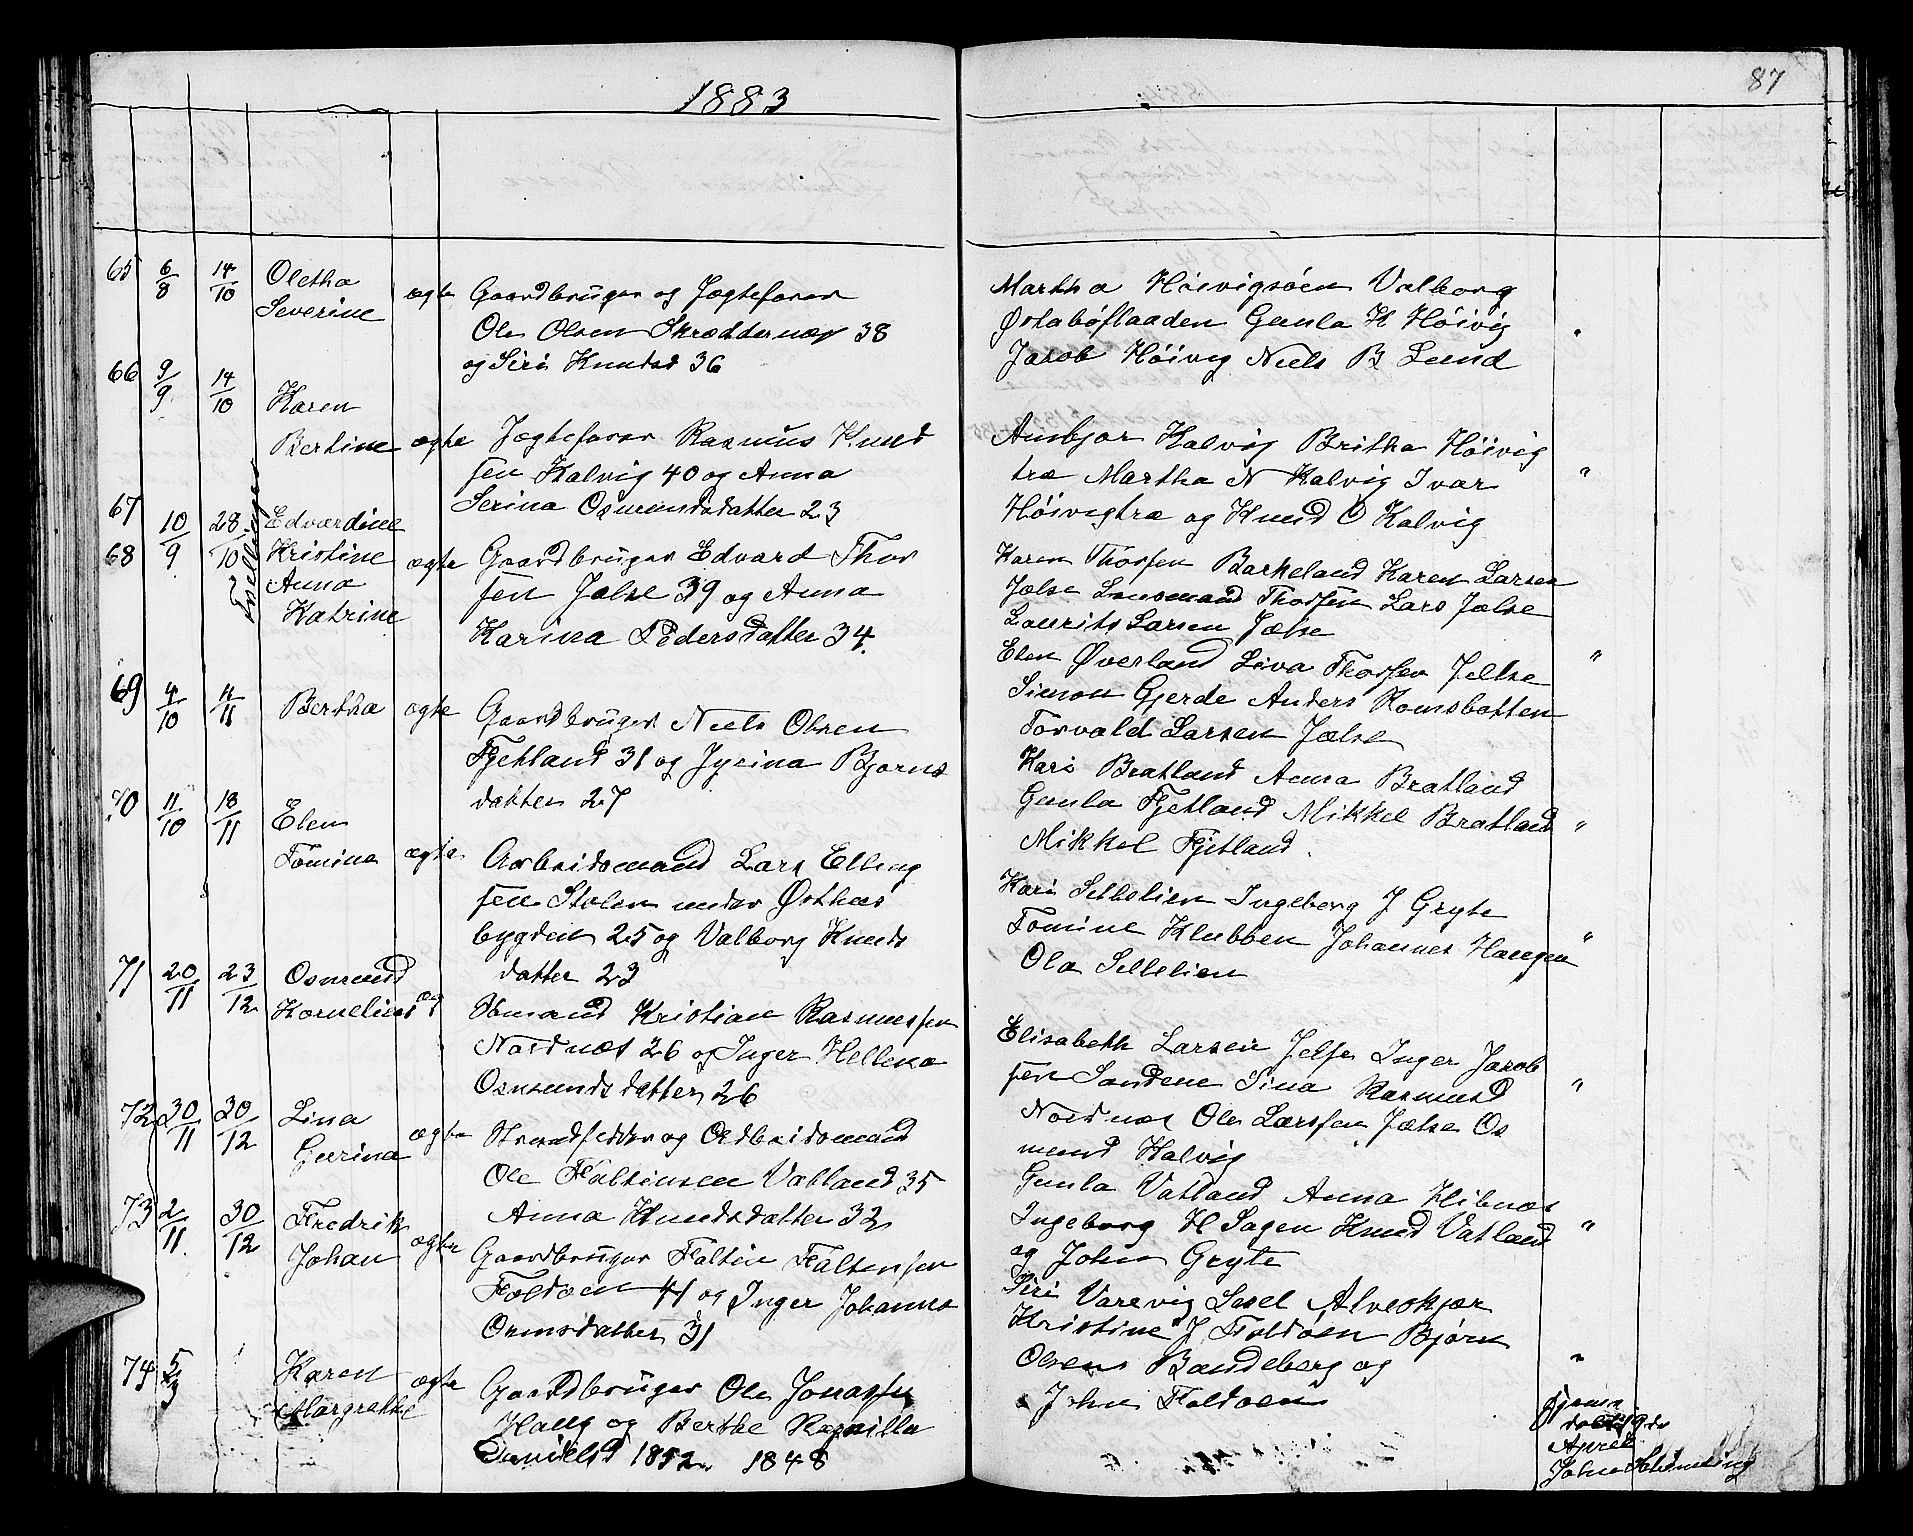 1883
87
65 6/8 14/10 Oletha Severine ægte Gaardbruger og Jægtefører
Ole Olsen Skreddernæs 38
og Siri Knudsd 36
Martha Høivigsøen Valborg
Østabøflaaden Gunla K Høivig "
Jacob Høivig Niels B Lund
66 9/9 14/10 Karen
Bertine ægte Jægtefører Rasmus Knud
sen Kalvig 40 og Anna
Serina Osmundsdatter 23
Ansbjør Kalvig Britha Høivig
træ Martha N Kalvig Ivar "
Høivigtræ og Knud O Kalvig
67 10/9 28/10 Edvardine
68 Kristine
Anna
Katrine
Tvellinger
ægte Gaardbruger Edvard Thor
sen Jælse 39 og Anna
Karina Pedersdatter 34.
Karen Thorsen Barkeland Karen Larsen
Jælse Lensmand Thorsen Lars Jælse
Laurits Larsen Jælse
Elen Øverland Liva Thorsen Jelse "
Simon Gjerde Anders Ramsbotten
Torvald Larsen Jælse
69 4/10 4/11 Bertha ægte Gaardbruger Niels Olsen
Fjetland 31 og Jyrina Bjørns
datter 27
Kari Bratland Anna Bratland
Gunla Fjetland Mikkel Bratland "
Mikkel Fjetland.
70 11/10 18/11 Elen
Tomine ægte Arbeidsmand Lars Elling
sen Stolen under Østhus
bygden 25 og Valborg Knuds
datter 23
Kari Sellelien Ingeborg J Gryte
Tomine Klubben Johannes Haugen "
Ola Sellelien
71 20/11 23/12 Osmund
Kornelius æg Stmand Kristian Rasmussen
Nordnæs 26 og Inger Hellena
Osmundsdatter 26
Elisabeth Larsen Jelse Inger Jacob
sen Sandene Sina Rasmusd "
Nordnæs Ole Larssen Jælse Os
mund Kalvig
72 30/11 30/12 Lina
Gurina ægte Strandsidder og Arbeidsmand
Ole Faltinsen Vatland 35
Anna Knudsdatter 32
Gunla Vatland Anna Hibnæs
Ingeborg H Sagen Knud Vatland "
og John Gryte
73 2/11 30/12 Fredrik
Johan ægte Gaardbruger Faltin Faltensen
Foldøen 41 og Inger Johanna
Ormsdatter 31
Siri Varevig Lesel Alveskjær
Kristine J Foldøen Bjørn
Olsen Bandeberg og "
John Foldøen
74 Karen
Margrethe ægte Gaardbruger Ole Jonassen
Haug og Berthe Ragnilla
Danielsd 1852 1848
Hjemme
døbt 19de
April
John